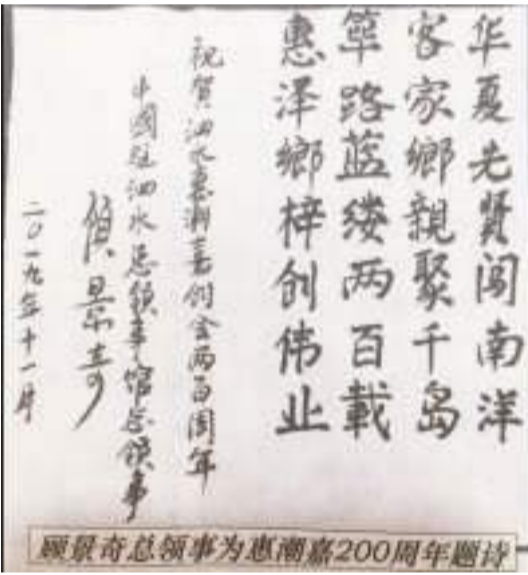 华夏先贤闯南洋
客家鄉親聚千岛
筚路蓝缕两百載
惠泽鄉梓创伟业
祝贺泗水惠潮嘉创会两百周年
中國駐泗水总领事馆总领事
顾景奇
二〇一九年十一月
顾景奇总领事为惠潮嘉200周年题诗